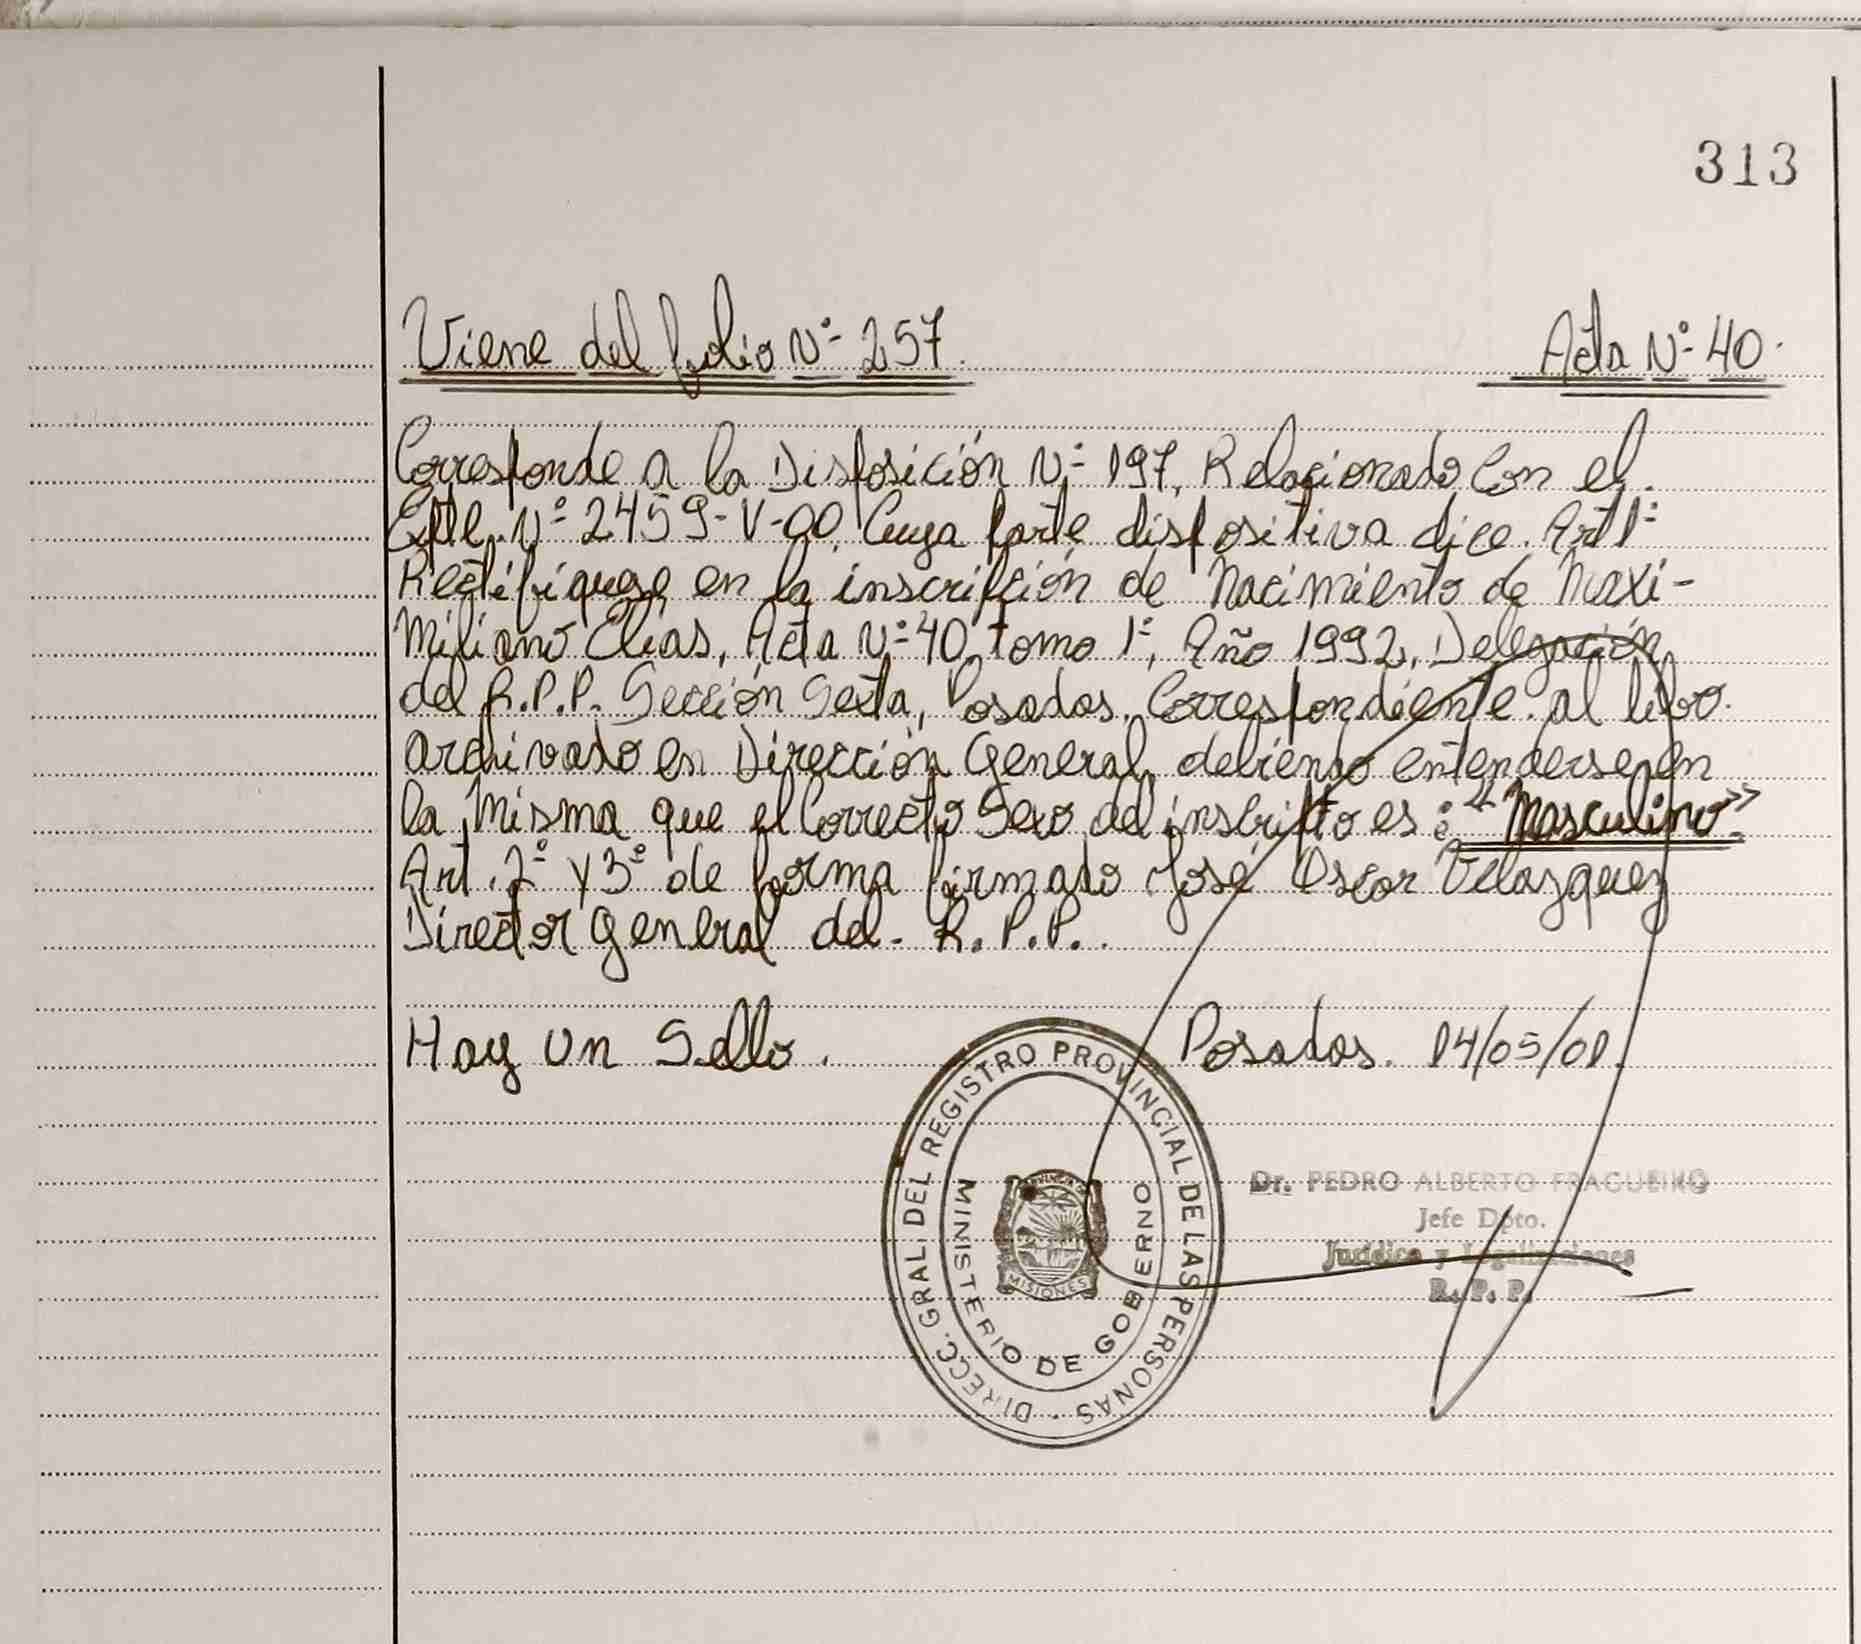 313
Viene del folio Nº 257. Acta Nº 40.
Corresponde a la Disposición Nº 197, Relacionado Con el
Expte. Nº 2459-V-00, Cuya parte dispositiva dice. Art 1º
Rectifíquese en la inscripción de Nacimiento de Maxi-
Miliano Elias, Acta Nº 40, tomo 1º, Año 1992, Delegación
del R.P.P. Sección Sexta, Posadas. Correspondiente al libro
archivado en Dirección General, debiendo entenderse en
la Misma que el Correcto Sexo del inscripto es: "Masculino".
Art. 2º y 3º de forma firmado José Oscar Velazquez
Director General del R.P.P.
Hay un Sello. Posadas. 14/05/01.
DIRECC. GRAL. DEL REGISTRO PROVINCIAL DE LAS PERSONAS
MINISTERIO DE GOBIERNO
MISIONES
Dr. PEDRO ALBERTO FRAGUEIRO
Jefe Dpto.
Jurídica y Legalizaciones
R. P. P.